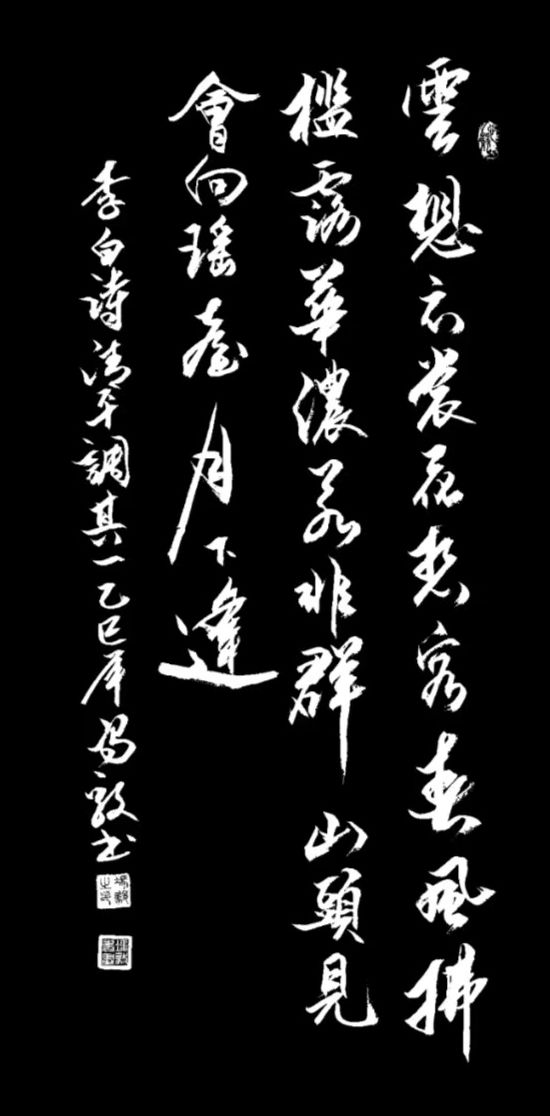 雲想衣裳花想容春風拂
檻露華濃若非群山頭見
會向瑶臺月下逢
李白詩清平調其一乙巳年馮書